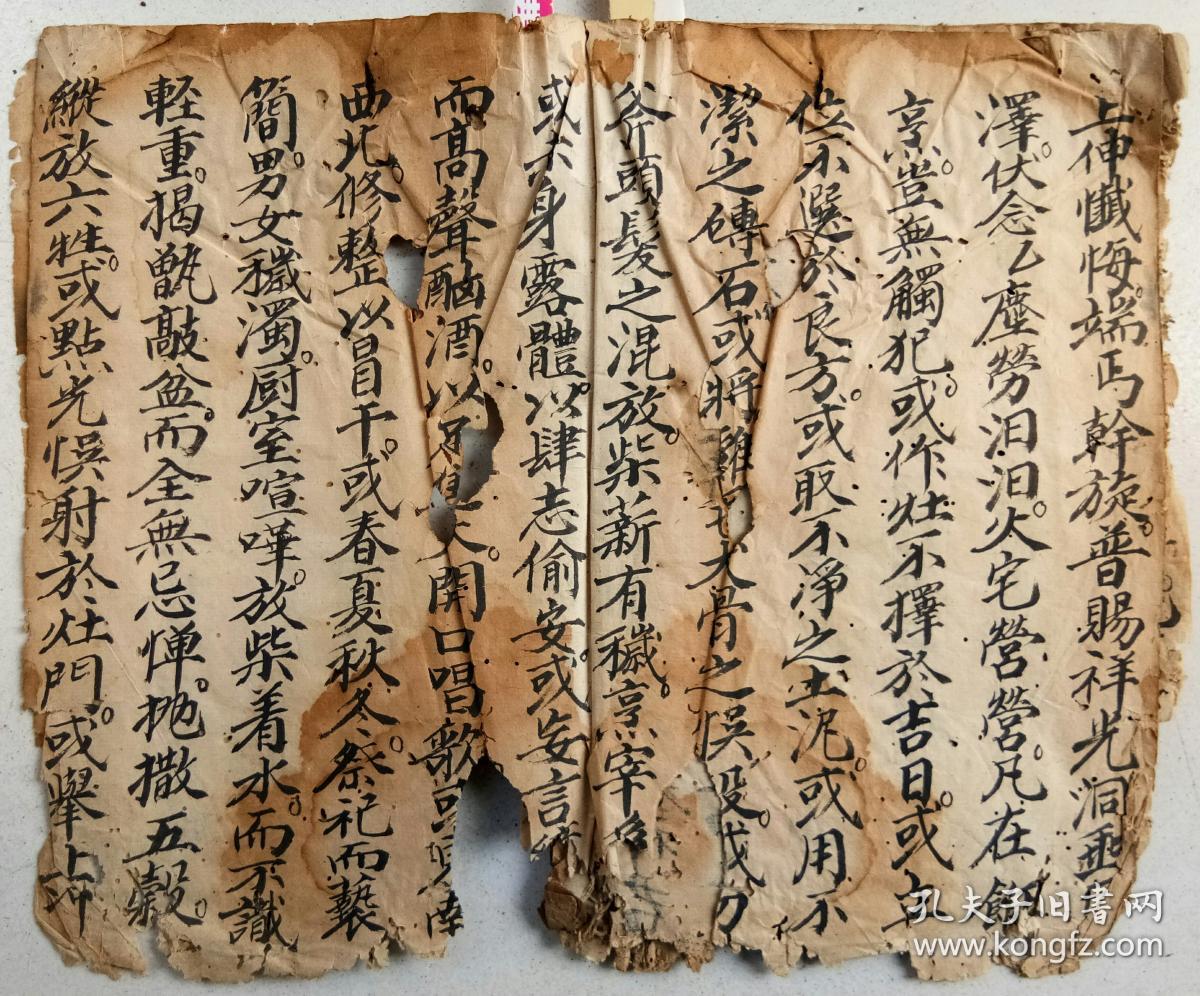 上伸懺悔端為幹旋。普賜祥光洞垂
澤。伏念乙塵勞汩汩。火宅營營。凡在
烹豈無觸犯。或作灶不擇於吉日。或
位不選於良方。或取不淨之土泥或用不
潔之磚石或將雞 犬骨之悞投。或刀
斧頭髮之混放。柴薪有穢。烹宰
或 身露體。以肆志偷安。或妄言
而高聲酗酒。以 開口唱歌
西北修整以冒干。或春夏秋冬。祭祀而褻
簡。男女穢濁。厨室喧嘩。放柴着水。而不識
輕重。揭甑敲盆。而全無忌惮。抛撒五穀。
縱放六牲。或點光悞射於灶門。或舉
孔夫子旧书网
www.kongfz.com